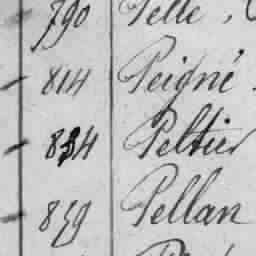 790 Pelle,
814 Peigné
834 Peltier
859 Pellan